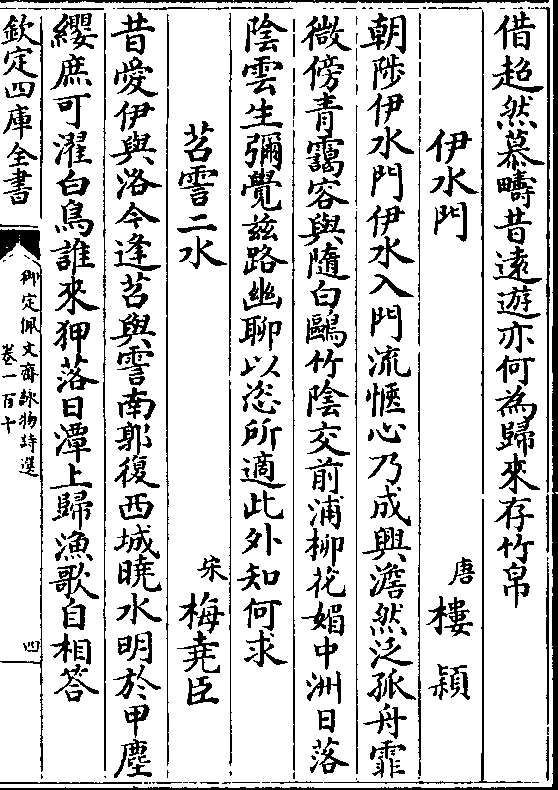 借超然慕疇昔遠遊亦何為歸來存竹帛
伊水門
唐 樓穎
朝陟伊水門伊水入門流愜心乃成興澹然泛孤舟霏
微傍青靄容與隨白鷗竹陰交前浦柳花媚中洲日落
陰雲生彌覺兹路幽聊以恣所適此外知何求
苕霅二水
宋 梅堯臣
昔愛伊與洛今逢苕與霅南郭復西城曉水明於甲塵
纓庶可濯白鳥誰來狎落日潭上歸漁歌自相答
欽定四庫全書
御定佩文齋詠物詩選
卷一百十
四